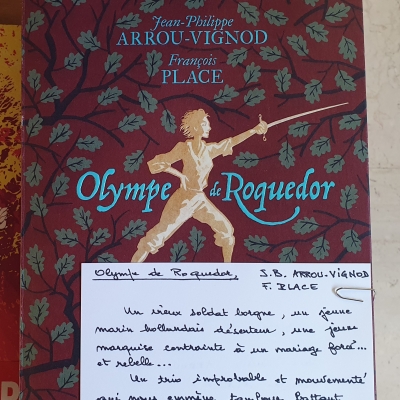 Jean-Philippe
ARROU-VIGNOD
François
PLACE
Olympe de Roquedor
Olympe de Roquedor, S.B. ARROU-VIGNOD
F. PLACE
Un vieux soldat borgne, un jeune
marin hollandais déserteur, une jeune
marquise contrainte à un mariage forcé...
et rebelle...
Un trio improbable et mouvementé
qui nous emmène tambour battant